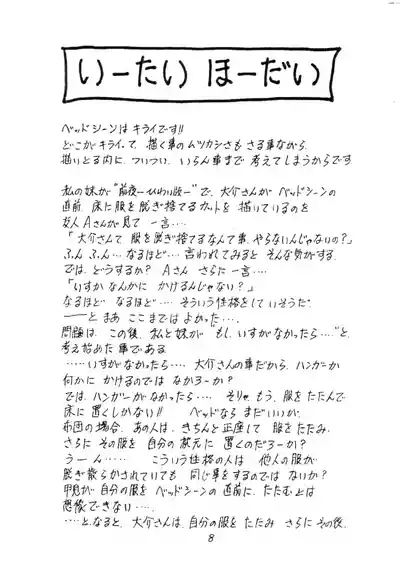 いーたい ほーだい
ベッドシーンは キライです!!
どこがキライって 描く事の ムツカシさも さる事ながら、
描いとる内に、ついつい、いらん事まで 考えてしまうからです
私の妹が“前夜ーひわい版ー”で、大介さんが ベッドシーンの
直前 床に服を脱ぎ捨てるカットを 描いているのを
友人 Aさんが見て 一言‥‥
「大介さんて 服を脱ぎ捨てるなんて事、やらないんじゃないの?」
ふんふん‥‥なるほど‥‥言われてみると そんな気がする。
では、どうするか? Aさん さらに 一言‥‥
「いすか なんかに かけるんじゃない?」
なるほど なるほど‥‥そういう性格をして いそうだ。
――と まあ ここまでは よかった‥‥。
問題は、この後、私と妹が“もし、いすがなかったら‥‥”と、
考え始めた 事である
‥‥‥いすがなかったら‥‥ 大介さんの事だから、ハンガーか
何かに かけるのでは なかろーか?
では、ハンガーがなかったら‥‥ そりゃ もう、服をたたんで
床に 置くしかない!! ベッドなら まだいいが、
布団の場合、あの人は、きちんと正座して 服をたたみ、
さらに その服を 自分の 枕元に 置くのだろーか?
うーん‥‥‥ こういう性格の人は 他人の服が
脱ぎ散らかされていても 同じ事をするのでは ないか?
甲児が 自分の服を ベッドシーンの 直前に、たたむとは
想像できない‥‥。
‥‥と、なると、大介さんは、自分の服を たたみ さらに その後、
8